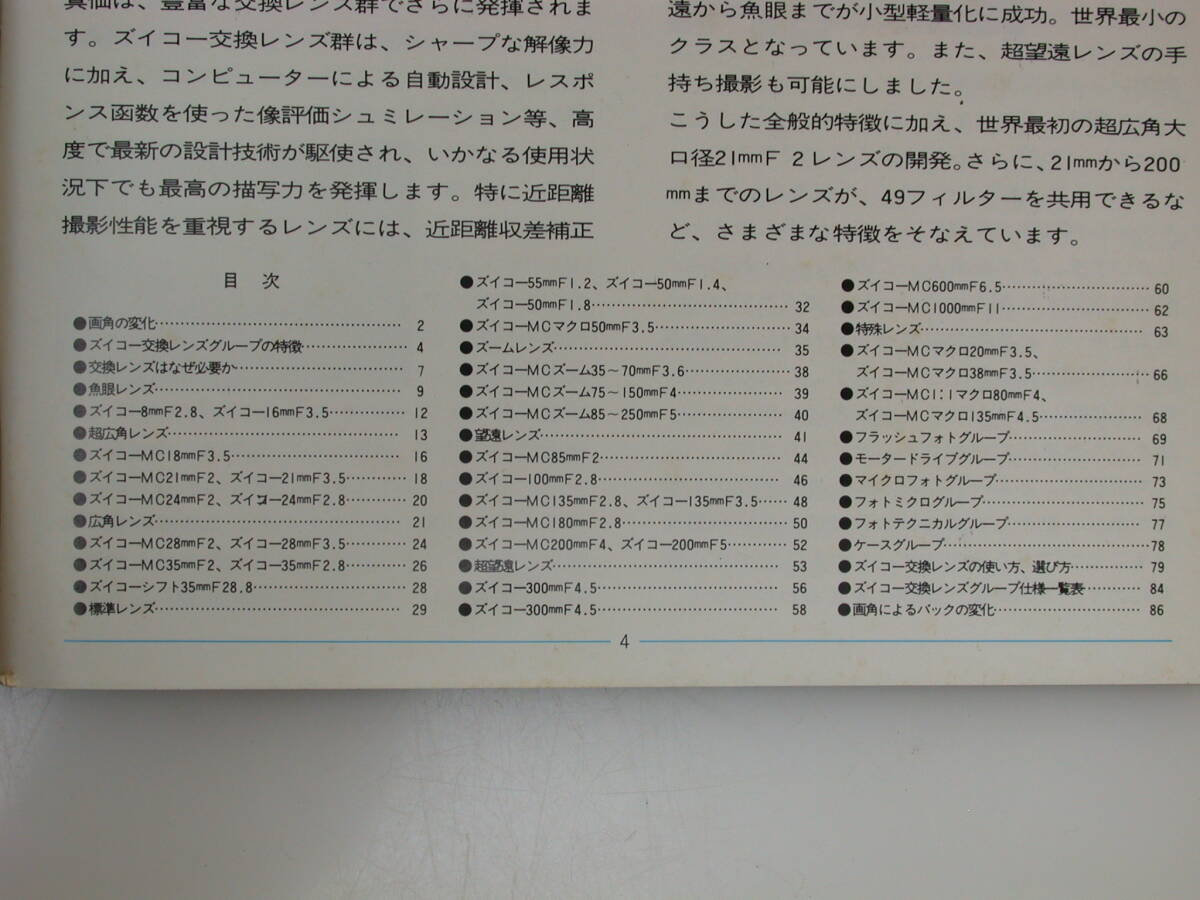 真価は、豊富な交換レンズ群でさらに発揮されま
す。ズイコー交換レンズ群は、シャープな解像力
に加え、コンピューターによる自動設計、レスポ
ンス函数を使った像評価シュミレーション等、高
度で最新の設計技術が駆使され、いかなる使用状
況下でも最高の描写力を発揮します。特に近距離
撮影性能を重視するレンズには、近距離収差補正
遠から魚眼までが小型軽量化に成功。世界最小の
クラスとなっています。また、超望遠レンズの手
持ち撮影も可能にしました。
こうした全般的特徴に加え、世界最初の超広角大
口径21mmF 2レンズの開発。さらに、21mmから200
mmまでのレンズが、49フィルターを共用できるな
ど、さまざまな特徴をそなえています。
目 次
●画角の変化…………………………………… 2
●ズイコー交換レンズグループの特徴…………… 4
●交換レンズはなぜ必要か……………………… 7
●魚眼レンズ…………………………………… 9
●ズイコー8mmF2.8、ズイコー16mmF3.5………… 12
●超広角レンズ………………………………… 13
●ズイコーMC18mmF3.5………………………… 16
●ズイコーMC21mmF2、ズイコー21mmF3.5……… 18
●ズイコーMC24mmF2、ズイコー24mmF2.8……… 20
●広角レンズ…………………………………… 21
●ズイコーMC28mmF2、ズイコー28mmF3.5……… 24
●ズイコーMC35mmF2、ズイコー35mmF2.8……… 26
●ズイコーシフト35mmF28.8…………………… 28
●標準レンズ…………………………………… 29
●ズイコー55mmF1.2、ズイコー50mmF1.4、
ズイコー50mmF1.8…………………………… 32
●ズイコーMCマクロ50mmF3.5………………… 34
●ズームレンズ………………………………… 35
●ズイコーMCズーム35〜70mmF3.6…………… 38
●ズイコーMCズーム75〜150mmF4…………… 39
●ズイコーMCズーム85〜250mmF5…………… 40
●望遠レンズ…………………………………… 41
●ズイコーMC85mmF2………………………… 44
●ズイコー100mmF2.8………………………… 46
●ズイコーMC135mmF2.8、ズイコー135mmF3.5…… 48
●ズイコーMC180mmF2.8……………………… 50
●ズイコーMC200mmF4、ズイコー200mmF5……… 52
●超望遠レンズ………………………………… 53
●ズイコー300mmF4.5………………………… 56
●ズイコー300mmF4.5………………………… 58
●ズイコーMC600mmF6.5……………………… 60
●ズイコーMC1000mmF11……………………… 62
●特殊レンズ…………………………………… 63
●ズイコーMCマクロ20mmF3.5、
ズイコーMCマクロ38mmF3.5………………… 66
●ズイコーMC1:1マクロ80mmF4、
ズイコーMCマクロ135mmF4.5……………… 68
●フラッシュフォトグループ…………………… 69
●モータードライブグループ…………………… 71
●マイクロフォトグループ……………………… 73
●フォトミクログループ………………………… 75
●フォトテクニカルグループ…………………… 77
●ケースグループ……………………………… 78
●ズイコー交換レンズの使い方、選び方………… 79
●ズイコー交換レンズグループ仕様一覧表……… 84
●画角によるバックの変化……………………… 86
4